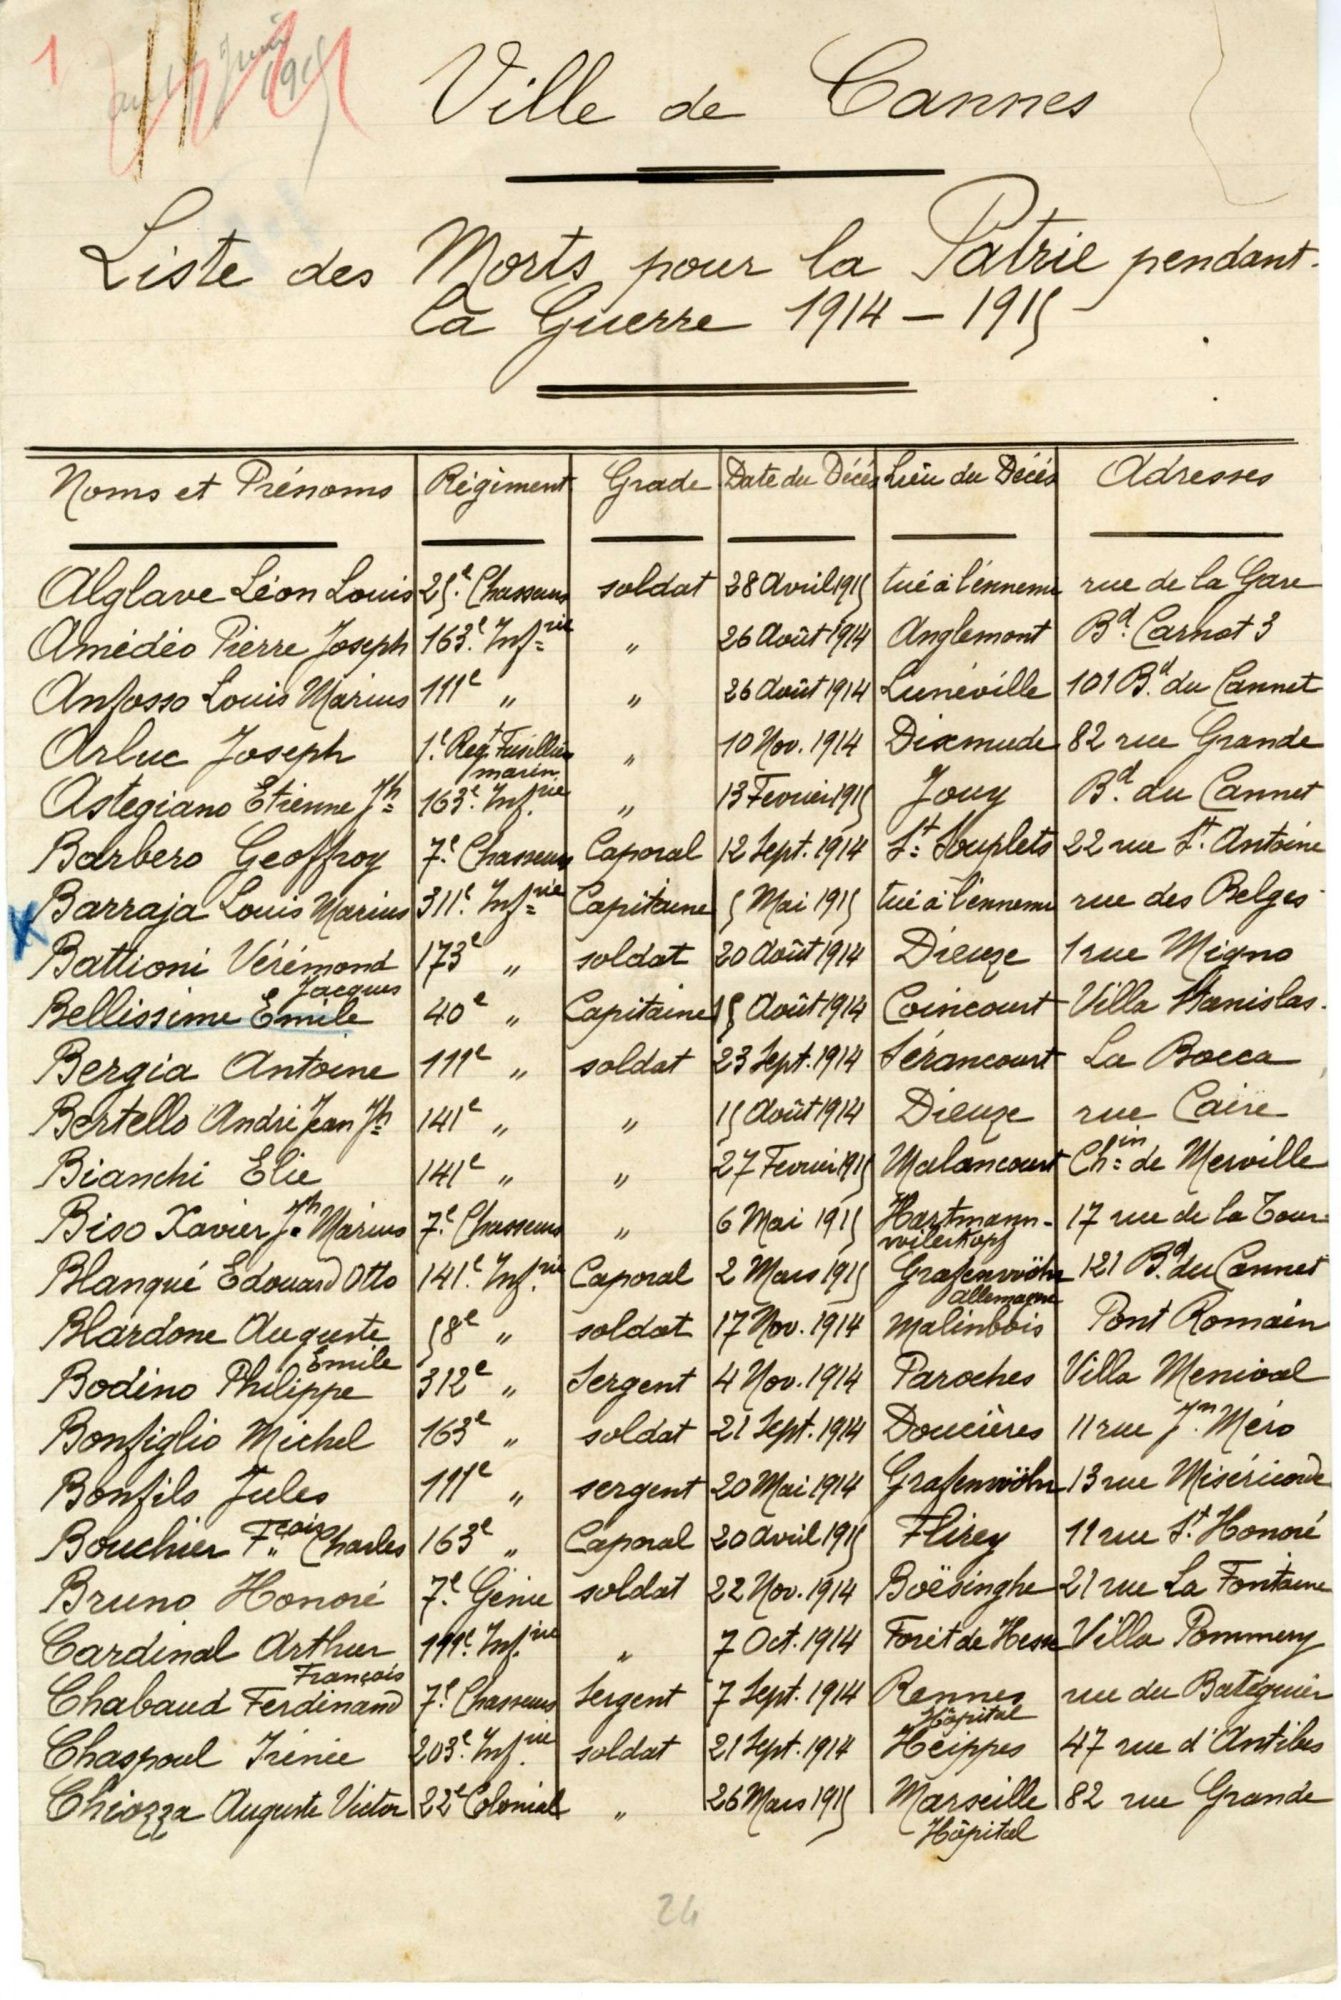 1
Juin
1915
Ville de Cannes
Liste des Morts pour la Patrie pendant
la Guerre 1914 - 1915
Noms et Prénoms Régiment Grade Date du Décés Lieu du Décés Adresses
Alglave Léon Louis 25e. Chasseurs soldat 28 Avril 1915 tué à l'ennemi rue de la Gare
Amédéo Pierre Joseph 163e. Infrie " 26 Août 1914 Anglemont Bd. Carnot 3
Anfosso Louis Marius 111e " " 26 Août 1914 Lunéville 101 Bd. du Cannet
Arluc Joseph 1e. Regt Fusillier marin " 10 Nov. 1914 Dixmude 82 rue Grande
Astegiano Etienne Jh 163e. Infrie " 13 Fevrier 1915 Jouy Bd. du Cannet
Barbero Geoffroy 7e. Chasseurs Caporal 12 Sept. 1914 St. Souplets 22 rue St. Antoine
Barraja Louis Marius 311e. Infrie Capitaine 5 Mai 1915 tué à l'ennemi rue des Belges
Battioni Vérémond Jacques 173e " soldat 20 Août 1914 Dieuze 1 rue Migno
Bellissime Emile 40e " Capitaine 15 Août 1914 Coincourt Villa Stanislas.
Bergia Antoine 111e " soldat 23 Sept. 1914 Sérancourt La Bocca
Bertello André Jean Jh 141e " " 15 Août 1914 Dieuze rue Caire
Bianchi Elie 141e " " 27 Fevrier 1915 Malancourt Chin de Merville
Biso Xavier Jh. Marius 7e. Chasseurs " 6 Mai 1915 Hartmann-wilerkopf 17 rue de la Tour
Blanqué Edouard Otto 141e. Infrie. Caporal 2 Mars 1915 Grafenwöhr Allemagne 121 Bd. du Cannet
Blardone Auguste Emile 58e " soldat 17 Nov. 1914 Malinbois Pont Romain
Bodino Philippe 312e " Sergent 4 Nov. 1914 Paroches Villa Menival
Bonfiglio Michel 163e " soldat 21 Sept. 1914 Doucières 11 rue Jn. Méro
Bonfils Jules 111e " sergent 20 Mai 1914 Grafenwöhr 13 rue Miséricorde
Bouchier Fcois Charles 163e " Caporal 20 Avril 1915 Flirey 11 rue St. Honoré
Bruno Honoré 7e. Génie soldat 22 Nov. 1914 Boësinghe 21 rue La Fontaine
Cardinal Arthur 111e. Infrie. " 7 Oct. 1914 Forêt de Hesse Villa Pommery
Chabaud Ferdinand François 7e. Chasseurs Sergent 7 Sept. 1914 Rennes Hôpital rue du Batéguier
Chaspoul Irénée 203e. Infrie. soldat 21 Sept. 1914 Heippes 47 rue d'Antibes
Chiozza Auguste Victor 22e Colonial " 26 Mars 1915 Marseille Hôpital 82 rue Grande
24